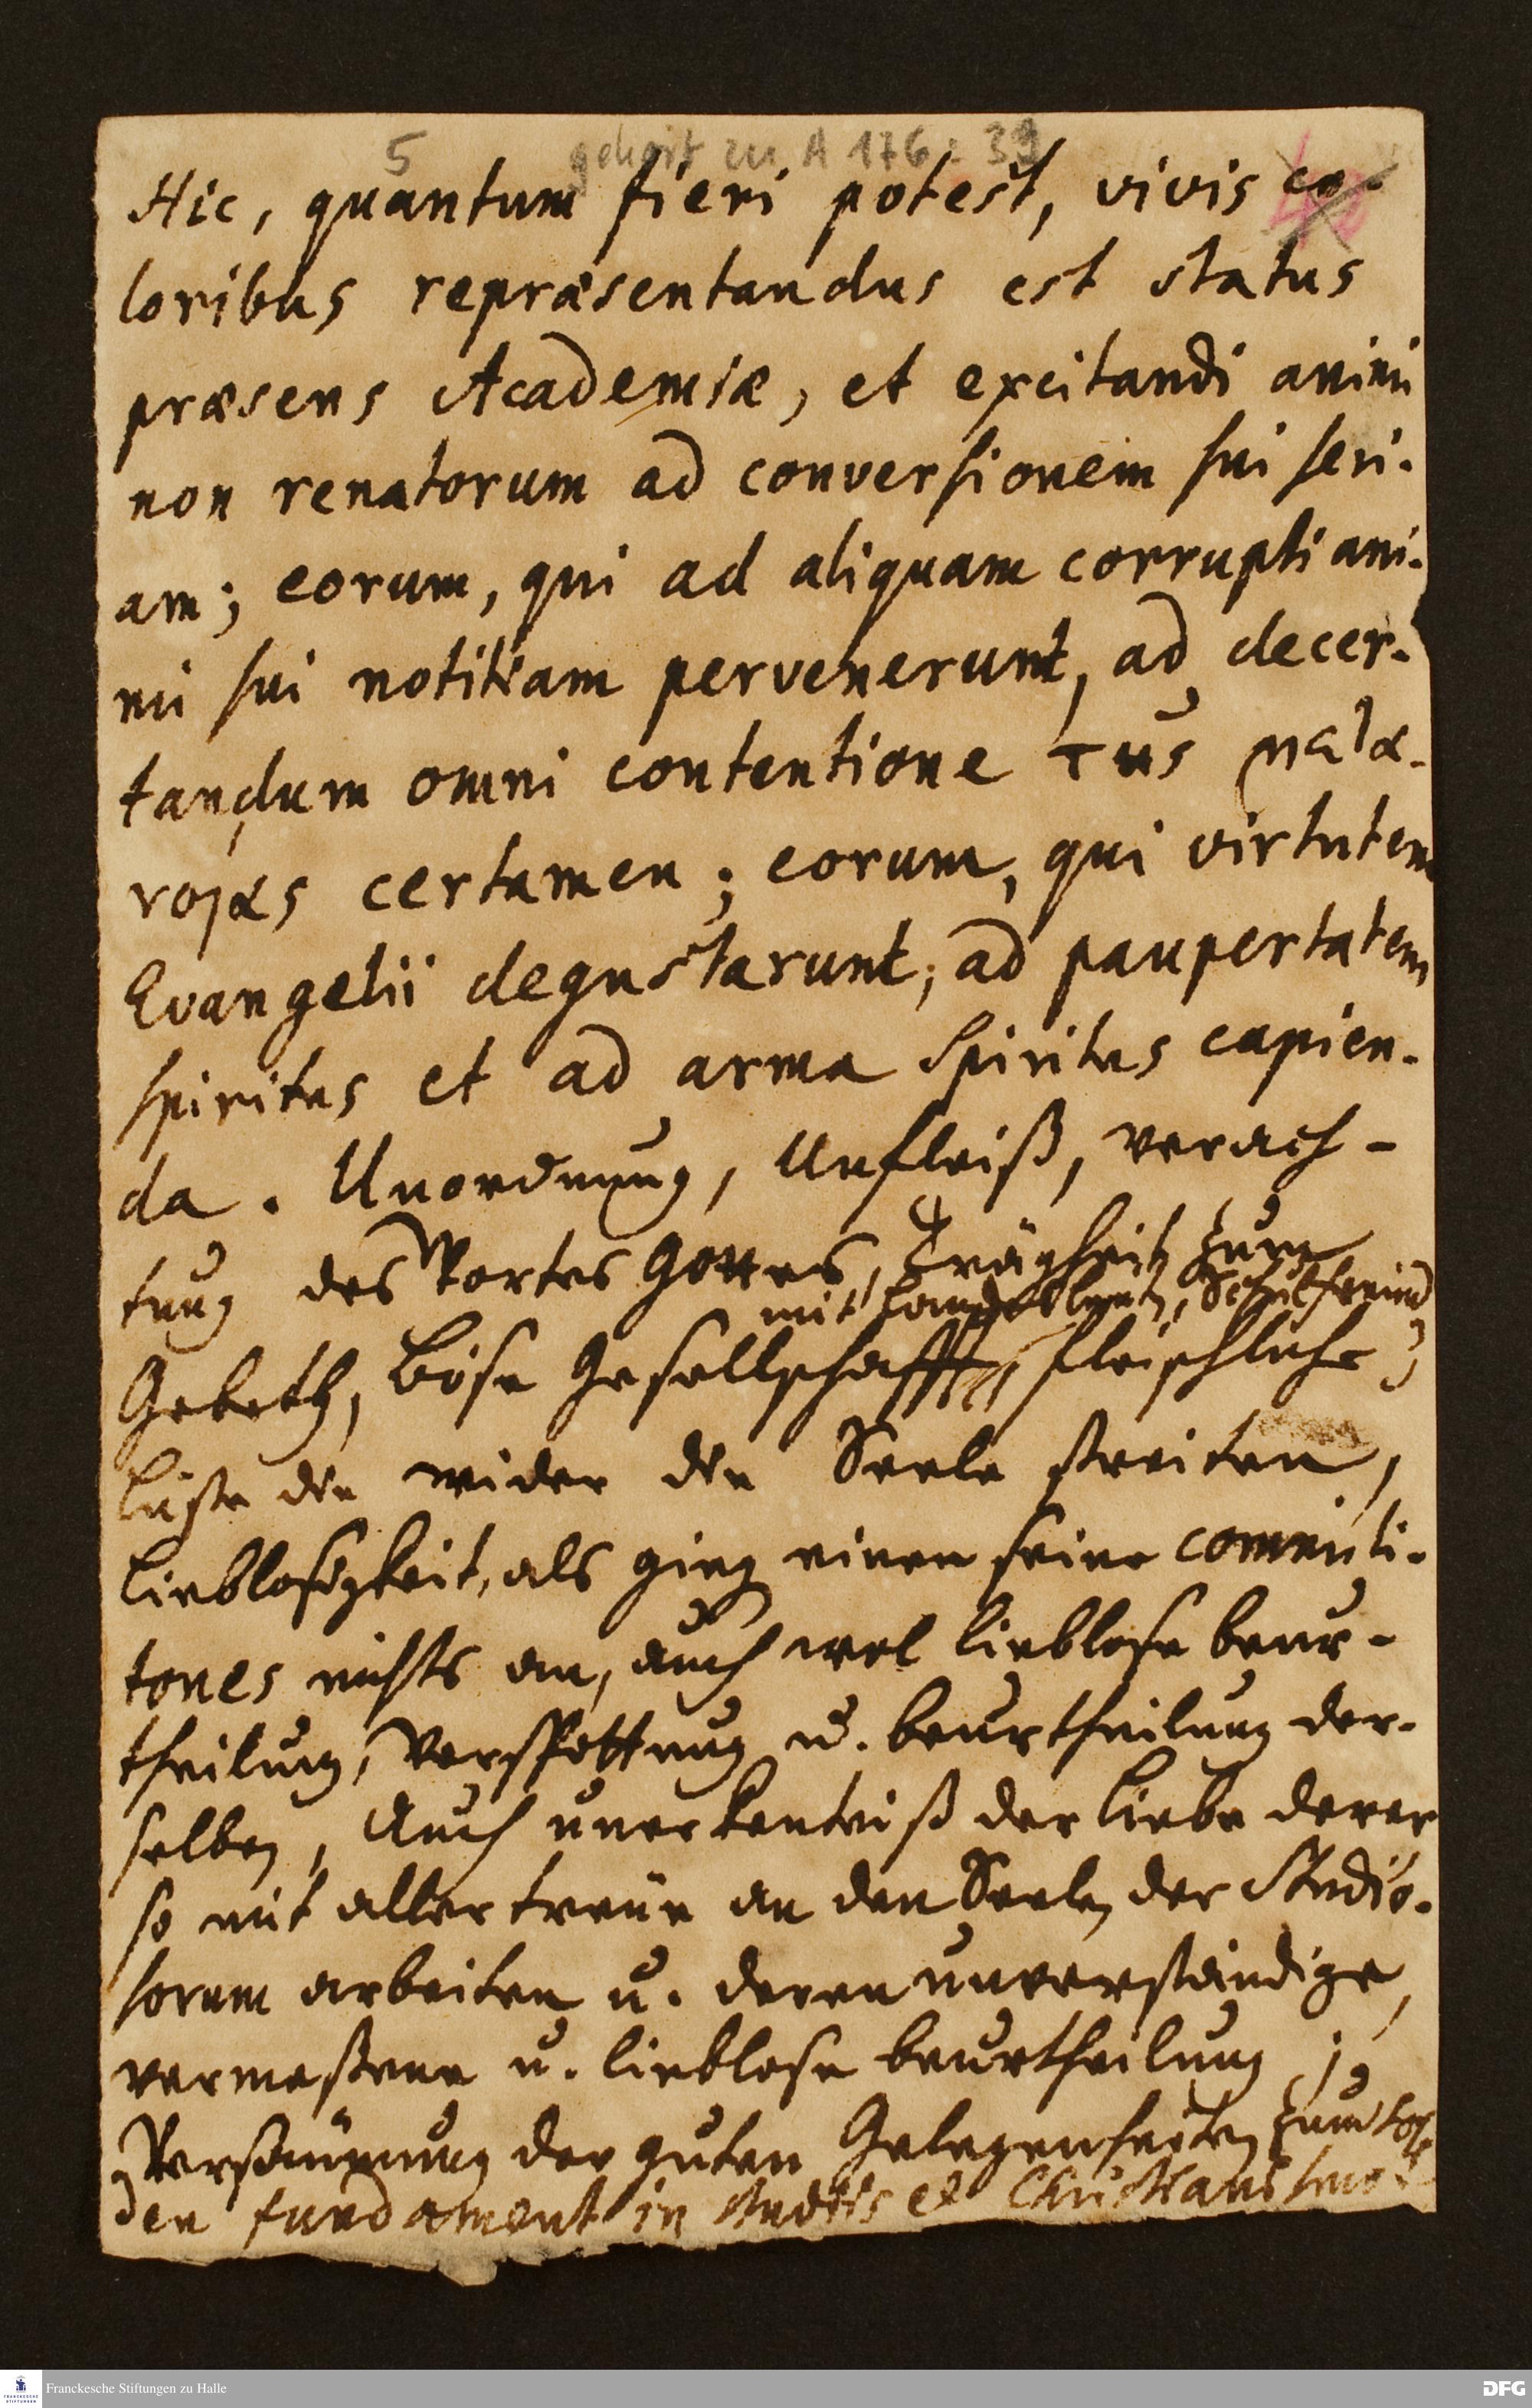 5 gehört zu A 176 : 39
Hic, quantum fieri potest, vivis co-
loribus repræsentandus est status
præsens Academiæ, et excitandi animi
non renatorum ad conversionem sui seri-
am; eorum, qui ad aliquam corrupti ani-
mi sui notitiam pervenerunt, ad decer-
tandum omni contentione τῆς μετα-
νοίας certamen; eorum, qui virtutem
Evangelii degustarunt, ad paupertatem
spiritus et ad arma Spiritus capien-
da. Unordnung, Unfleiß, verach-
tung des Wortes Gottes, Trägheit zum
mit Landsleuten, Schulfreund
Gebeth, böse Gesellschafft, fleischliche
lüste die wider die Seele streiten,
Lieblosigkeit, als ging einen seine commili-
tones nichts an, auch wol lieblose beur-
theilung, Verspottung u. beurtheilung der-
selben, Auch unerkentniß der Liebe derer
so mit aller treue an den Seelen der Studio-
sorum arbeiten u. deren unverständige,
vermeßene u. lieblose beurtheilung
Versäumung der guten Gelegenheiten zum
den fundament in studiis et Christianismo
Franckesche Stiftungen zu Halle
FRANCKESCHE STIFTUNGEN
DFG